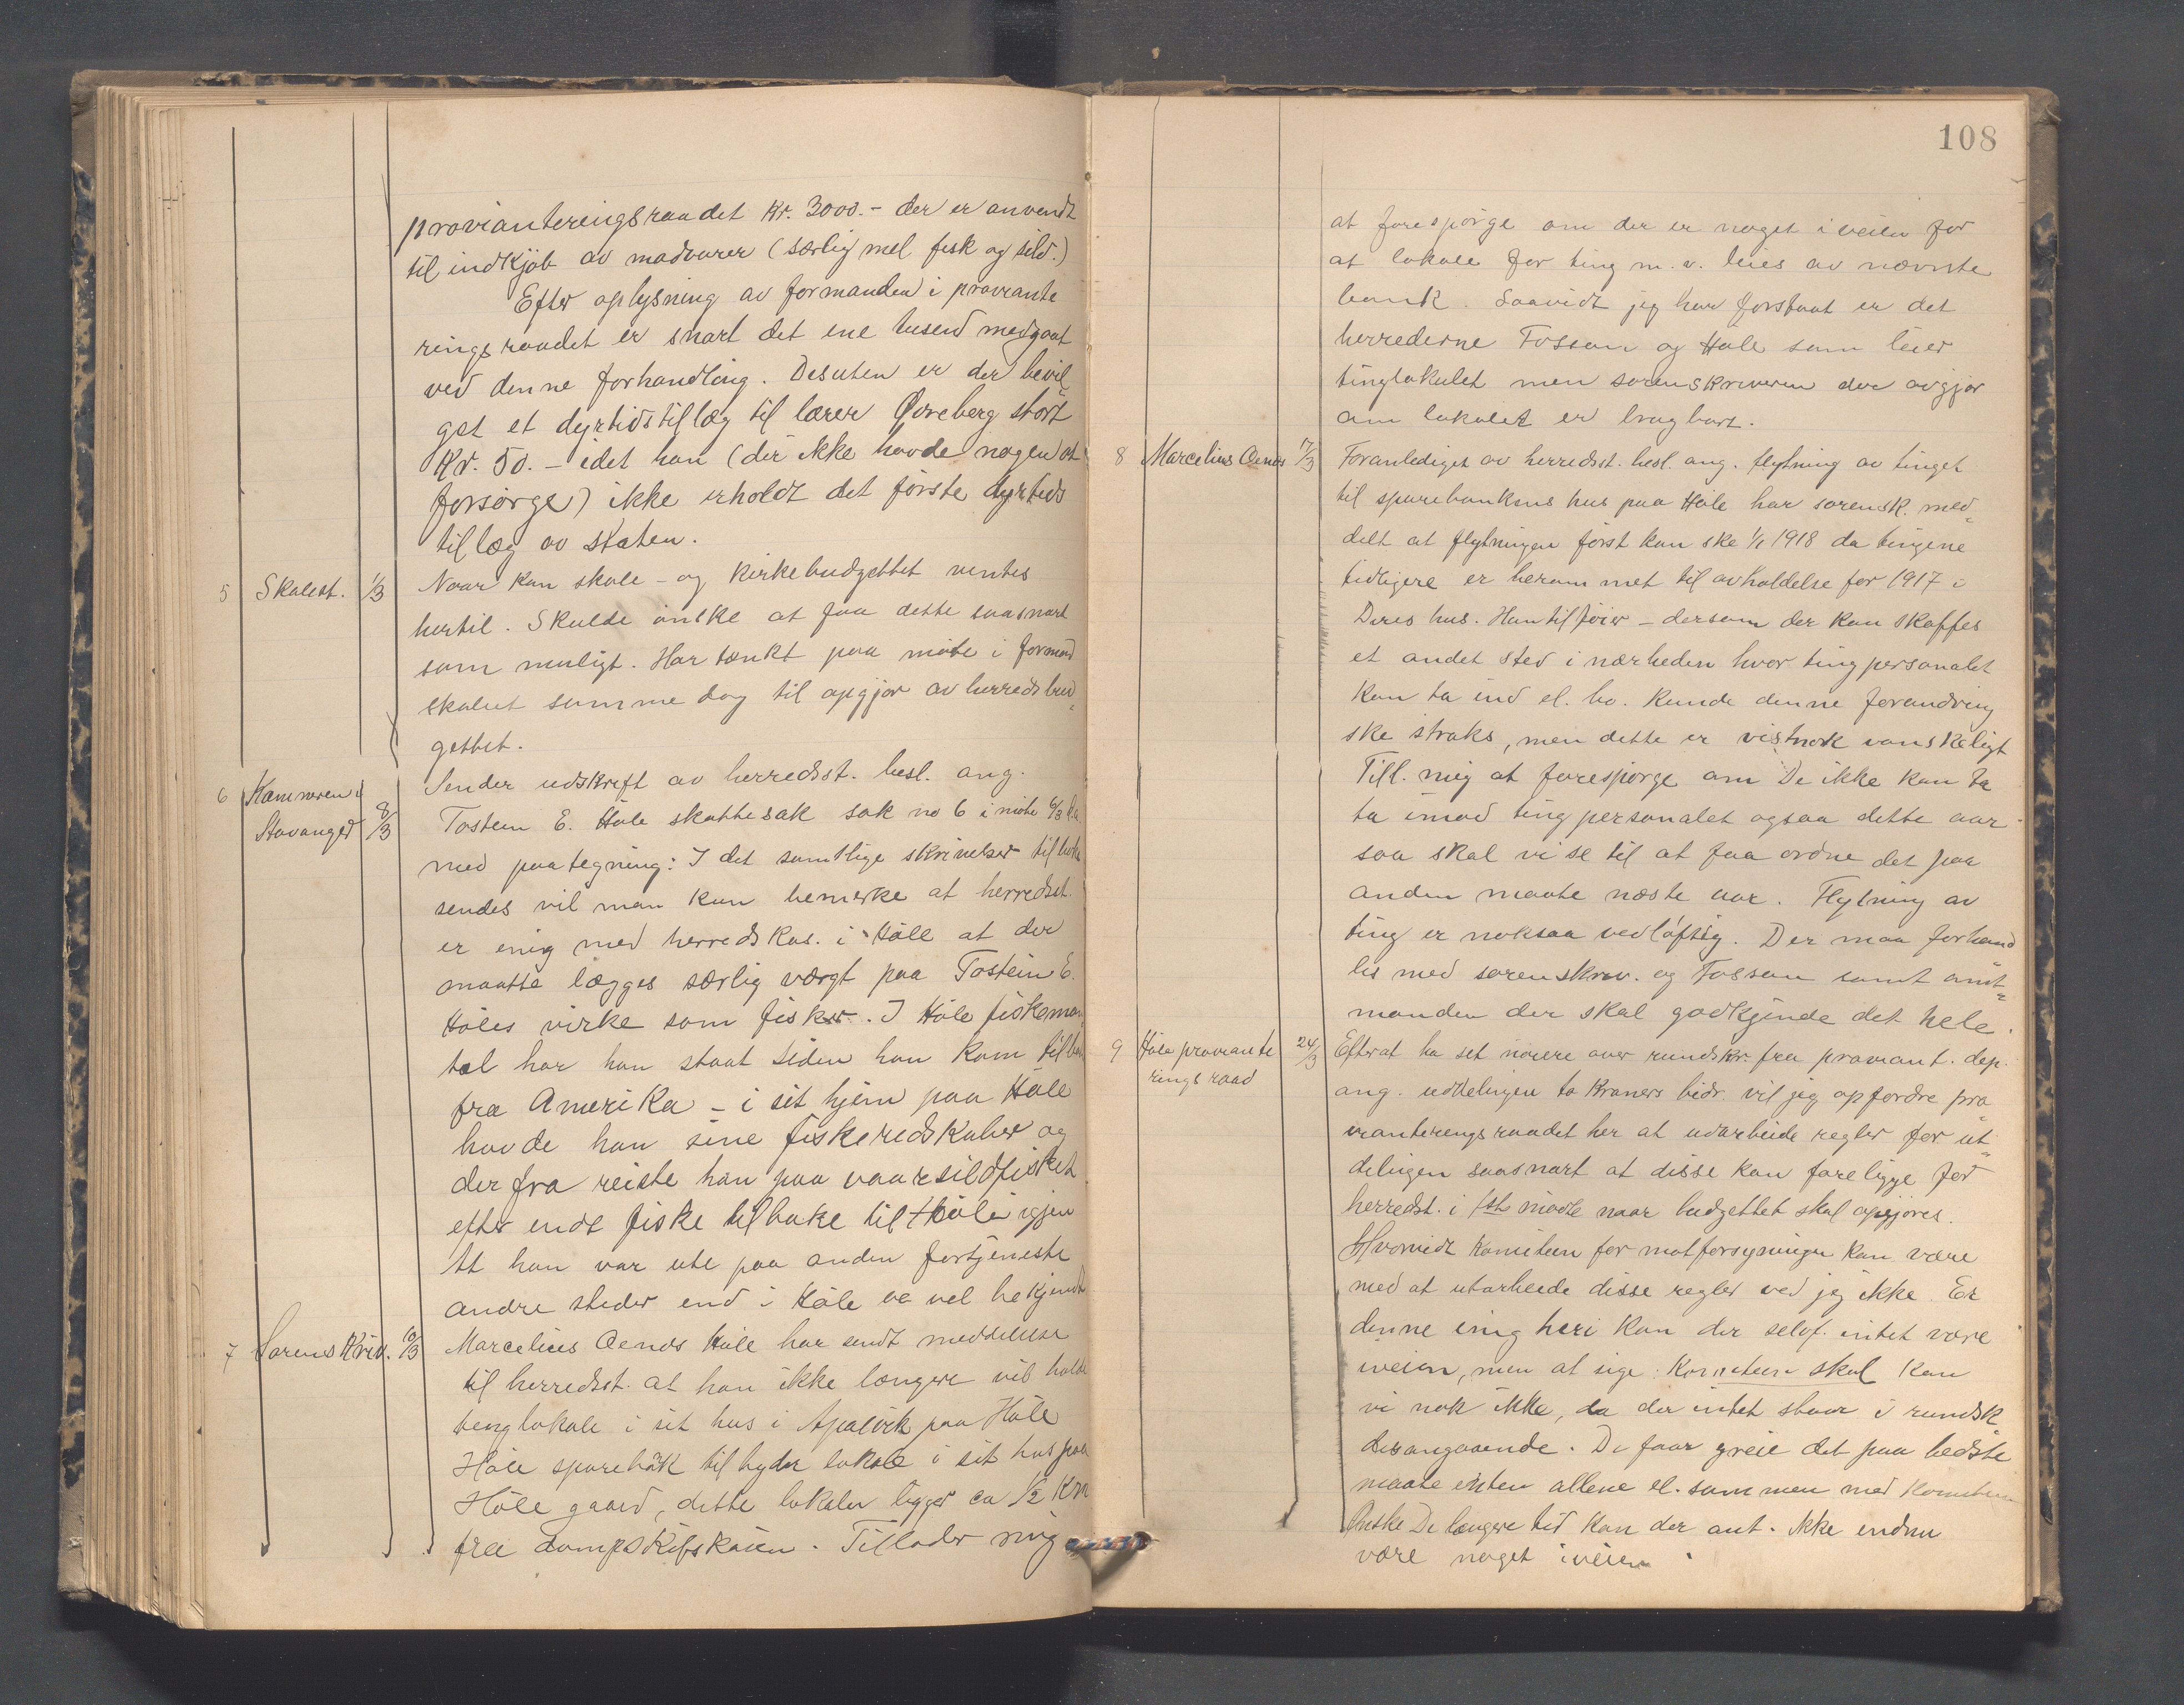 provianteringsraadet Kr. 3000.- der er anvendt
til indkjöb av madvarer (særlig mel fisk og sild.)
Efter oplysning av formanden i proviante
ringsraadet er snart det ene tusend medgaat
ved denne forhandling. Desuten er der bevil
get et dyrtidstillæg til lærer Øvreberg stort
Kr. 50.- idet han (der ikke havde nogen at
forsörge) ikke erholdt det förste dyrtids
tillæg av staten.
5 Skolest. 1/3 Naar kan skole- og kirkebudgettet ventes
hertil. Skulde önske at faa dette saasnart
som muligt. Har tænkt paa möte i formand
skabet samme dag til opgjör av herredsbud
gettet.
6 Kæmneren i Stavanger 8/3 Sender udskrift av herredsst. besl. ang.
Tostein E. Höle skattesak sak no 6 i möte 6/3
med paategning: I det samtlige skrivelser
sendes vil man kun bemerke at herredsst.
er enig med herredskas. i Höle at der
maatte lægges særlig vægt paa Tostein E.
Höles virke som fisker. I Höle fiskeman
tal har han staat siden han kom
fra Amerika - i sit hjem paa Höle
havde han sine fiskeredskaber og
derfra reiste han paa vaarsildfisket
efter endt fiske tilbake til Höle igjen
At han var ute paa anden fortjeneste
andre steder end i Höle er vel bekjendt
7 Sorenskriv. 10/3 Marcelius Aenes Höle har sendt meddelelse
til herredsst. at han ikke længere vil holde
tinglokale i sit hus i Apalvik paa Höle
Höle sparebank tilbyder lokale i sit hus paa
Höle gaard, dette lokaler ligger ca 1/2 Km
fra dampskibskaien. Tillader mig
108
at forespörge om der er noget iveien for
at lokale for ting m.v. leies av nævnte
bank. Saavidt jeg har forstaat er det
herrederne Fossan og Höle som leier
tinglokalet men sorenskriveren der avgjör
om lokalet er brugbart.
8 Marcelius Aenes 17/3 Foranlediget av herredsst. besl. ang. flytning av tinget
til sparebankens hus paa Höle har sorensk. med
delt at flytningen först kan ske 1/1 1918 da tingene
tidligere er berammet til avholdelse for 1917 i
Deres hus. Han tilföier - dersom der kan skaffes
et andet sted i nærheden hvor tingpersonalet
kan ta ind el. bo. kunde denne forandring
ske straks, men dette er vistnok vanskeligt
Till. mig at forespörge om De ikke kan ta
ta imod tingpersonalet ogsaa dette aar
saa skal vi se til at faa ordne det paa
anden maate næste aar. Flytning av
ting er noksaa vedlöftig. Der maa forhand
les med sorenskriv. og Fossan samt amt
manden der skal godkjende det hele.
9 Höle proviante
ringsraad 24/3 Efterat ha set nöiere over rundskr. fra proviant. dep.
ang. uddelingen to kroners bidr. vil jeg opfordre pro
vianteringsraadet her at udarbeide regler for ut
delingen saasnart at disse kan foreligge for
herredst. i 1ste möde naar budgettet skal opgjöres.
Hvorvidt komiteen for matforsyningen kan være
med at utarbeide disse regler ved jeg ikke. Er
denne enig heri kan der selvf. intet være
iveien, men at sige: komiteen skal kan
vi nok ikke, da der intet staar i rundsk
desangaaende. De faar greie det paa bedste
maate enten allene el. sammen med komiteen
Önske De længere tid kan der ant. ikke endnu
være noget iveien.